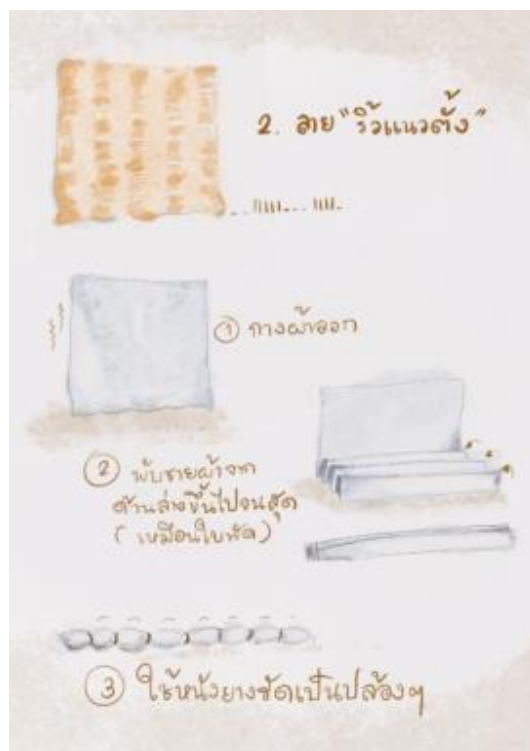 2. ลาย "ริ้วแนวตั้ง"
① กางผ้าออก
② พับชายผ้าจาก
ด้านล่างขึ้นไปจนสุด
( เหมือนใบพัด )
③ ใช้หนังยางรัดเป็นปล้องๆ